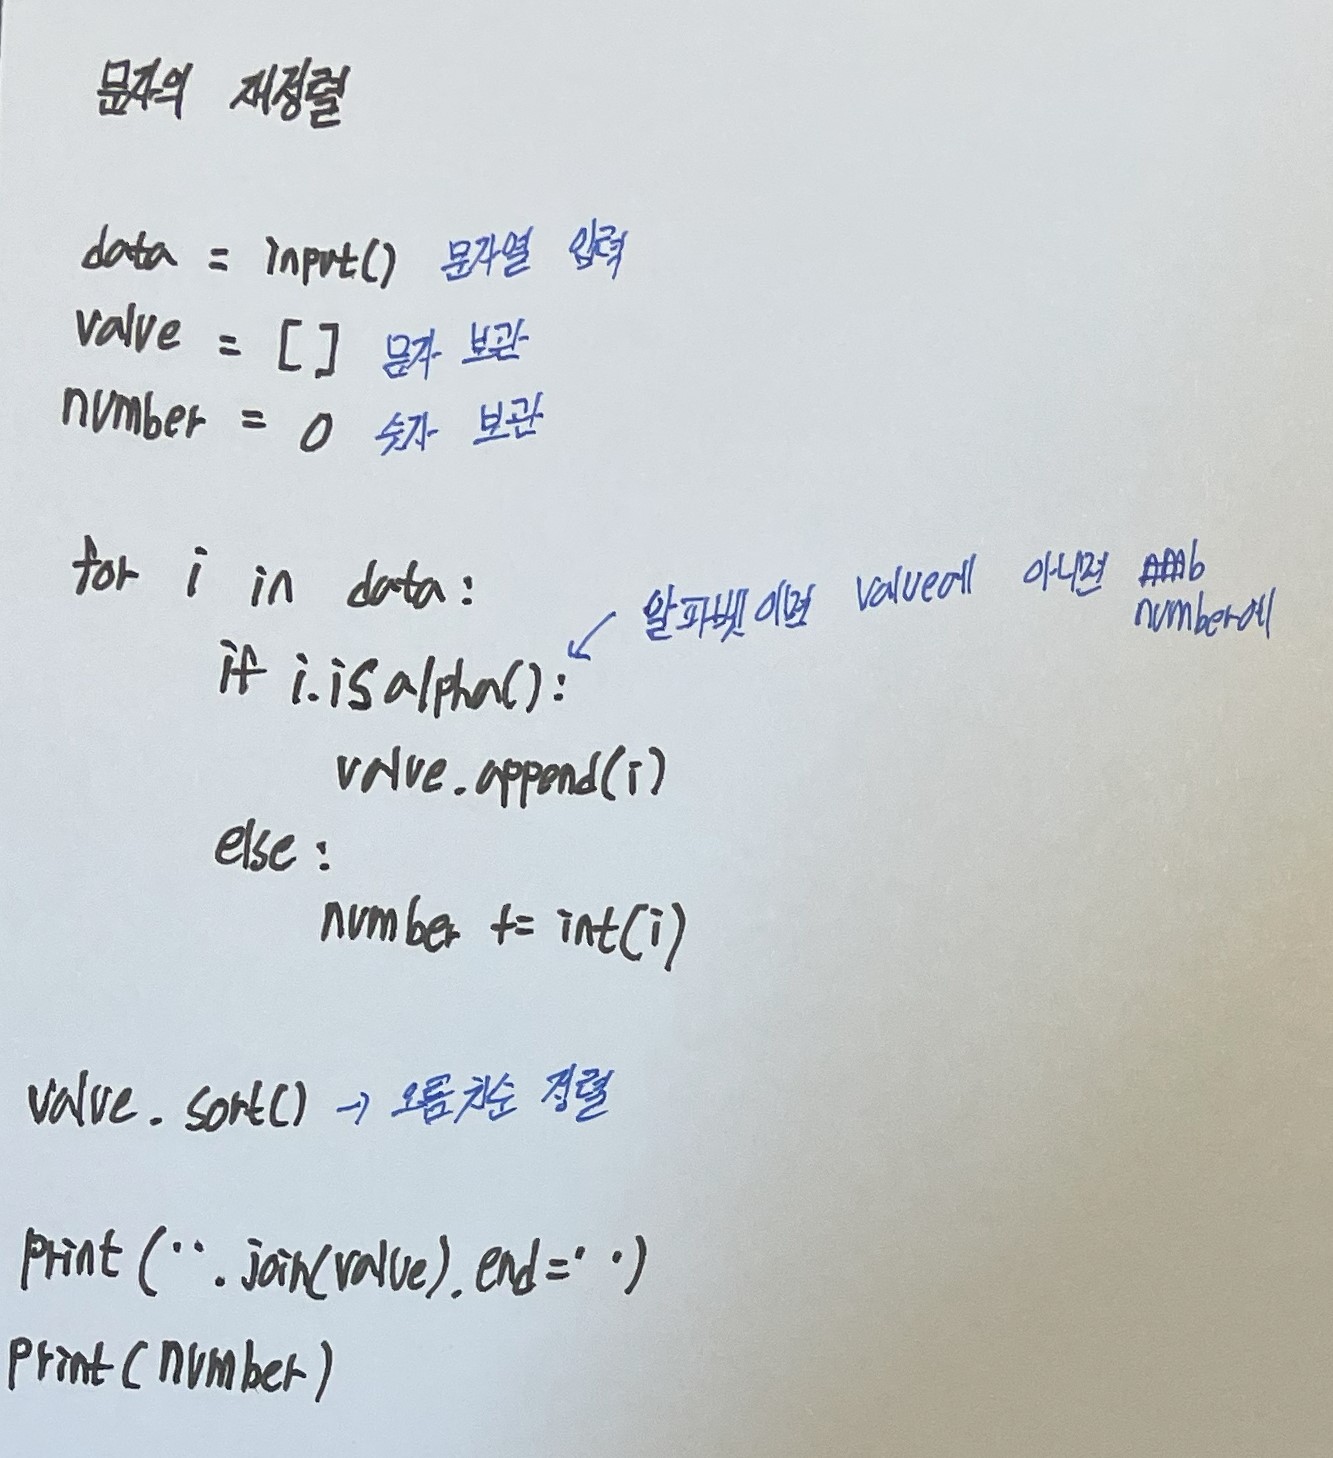 문자의 재정렬
data = input() 문자열 입력
value = [] 문자 보관
number = 0 숫자 보관
for i in data:
if i.isalpha():
알파벳이면 value에 아니면
number에
value.append(i)
else:
number += int(i)
value.sort() → 오름차순 정렬
print(''.join(value), end=' ')
print(number)